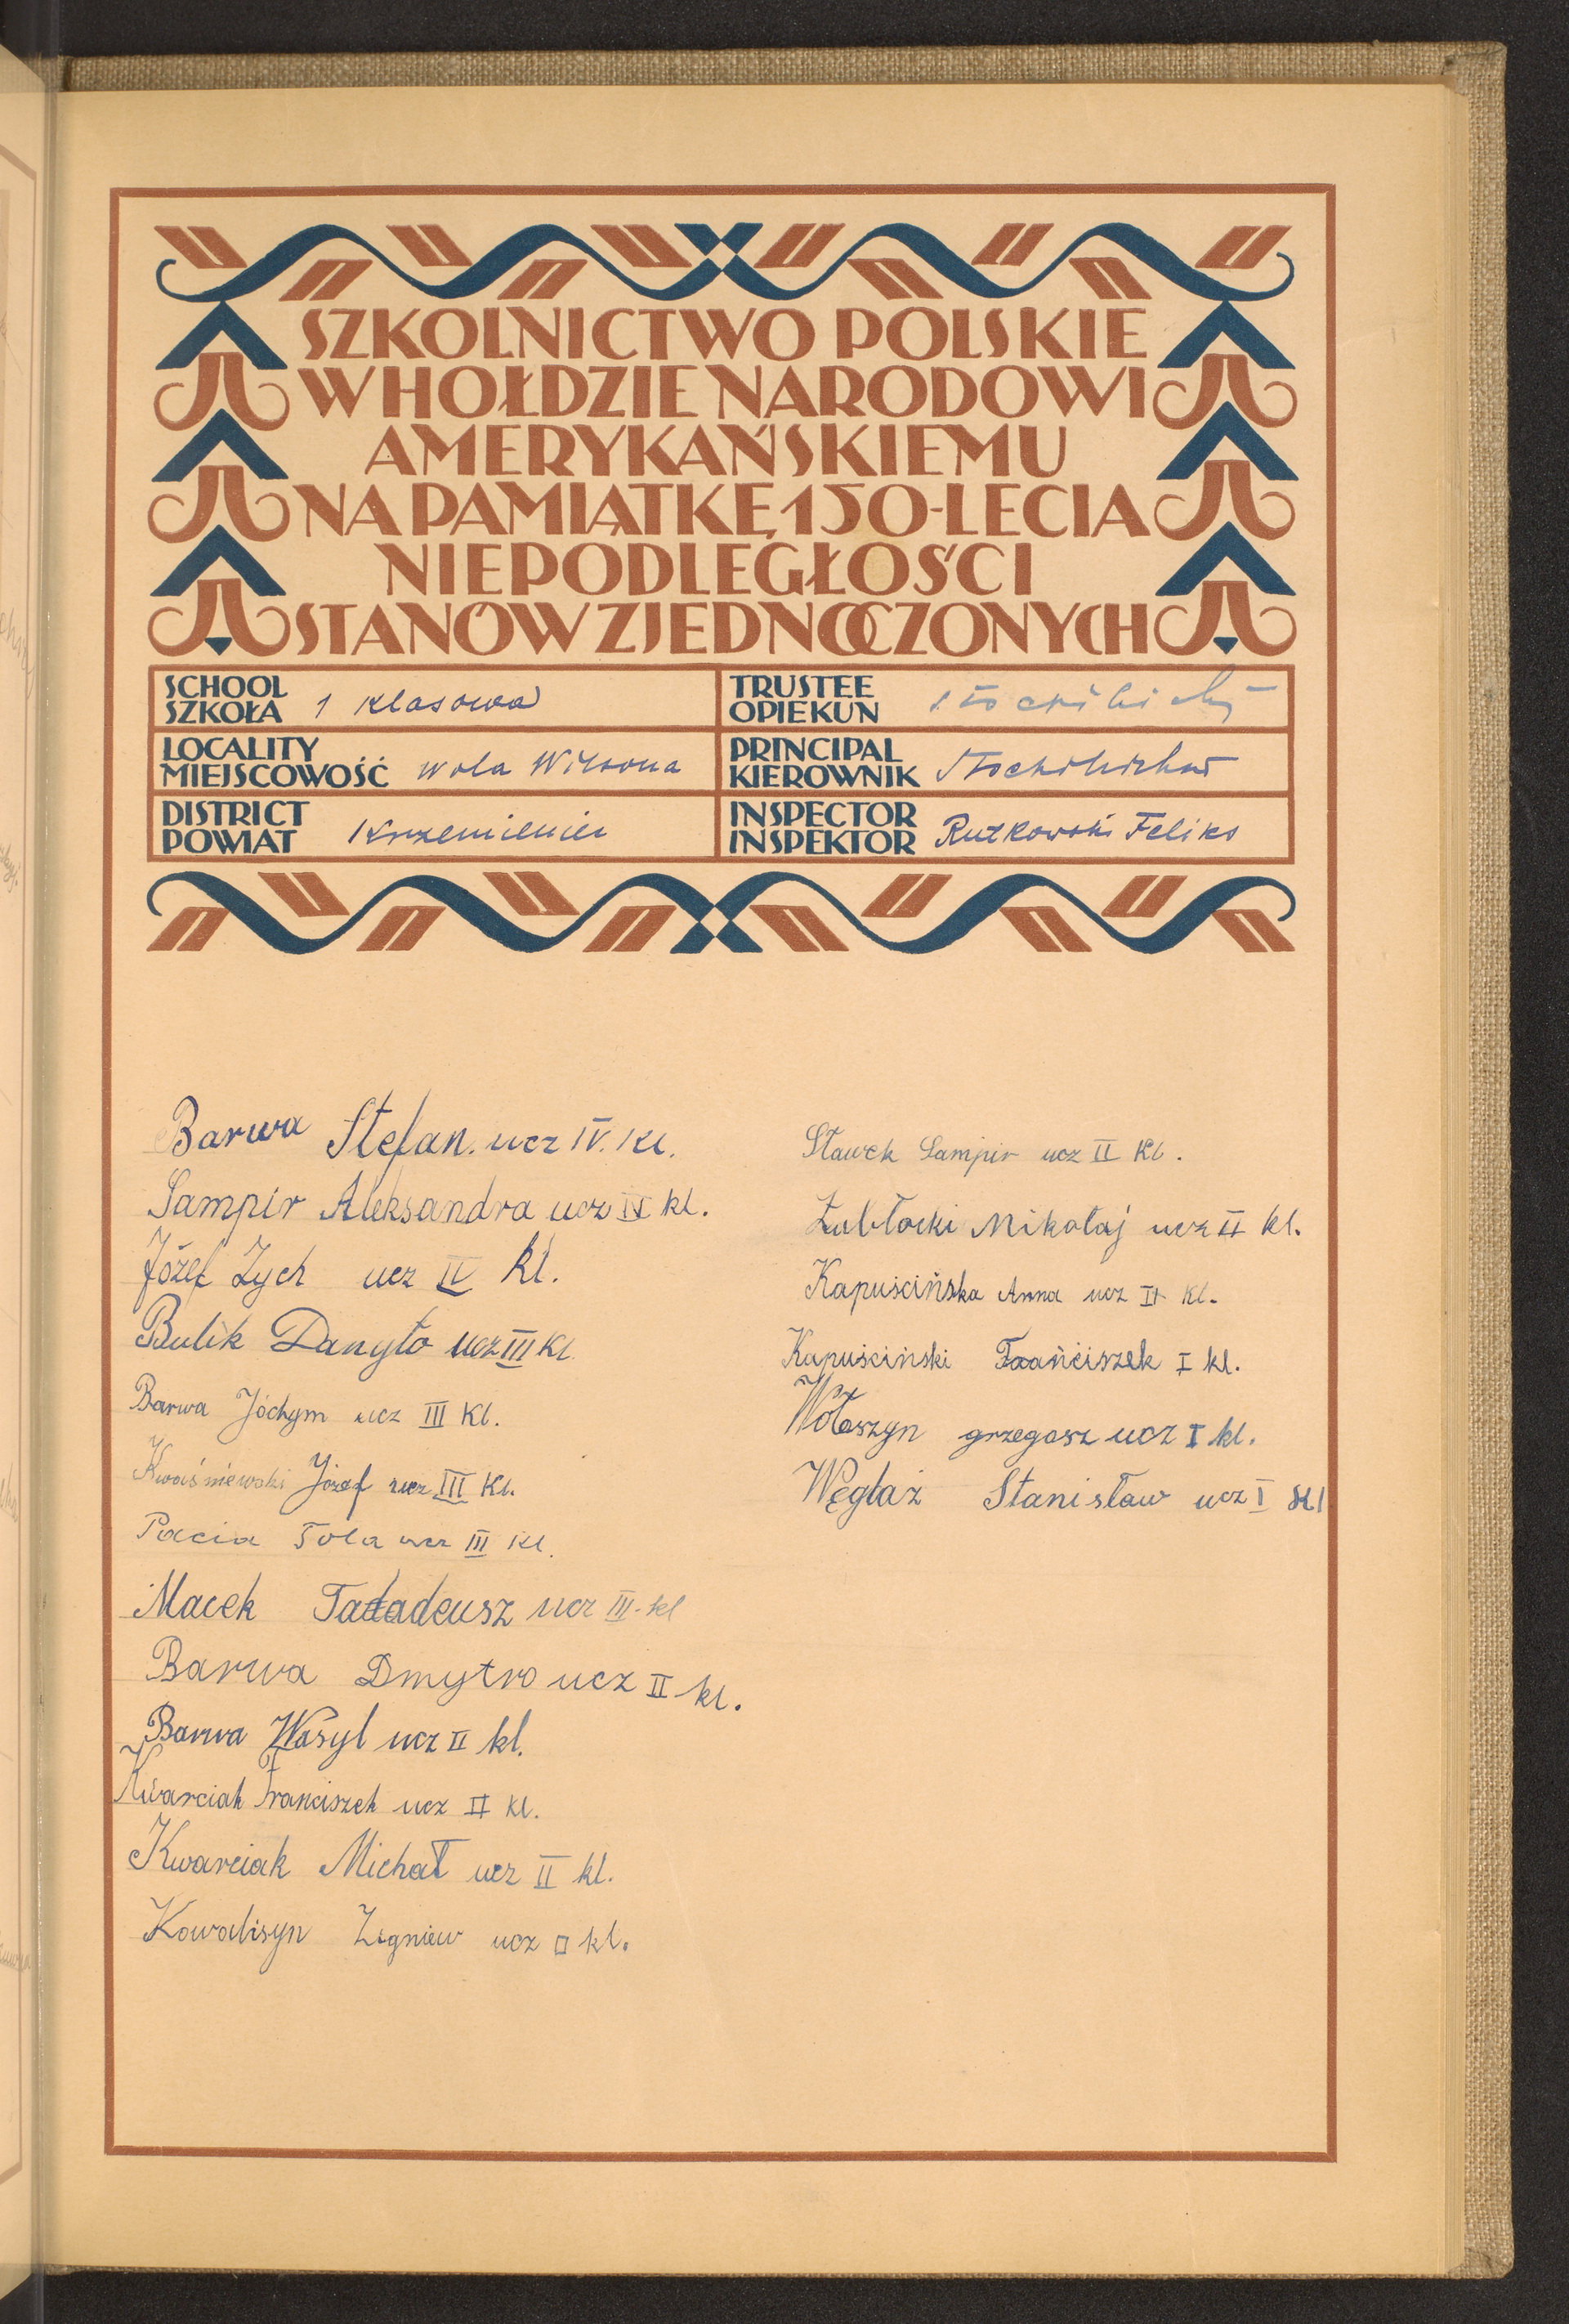 SZKOLNICTWO POLSKIE
W HOŁDZIE NARODOWI
AMERYKAŃSKIEMU
NA PAMIĄTKĘ 150-LECIA
NIEPODLEGŁOŚCI
STANÓW ZJEDNOCZONYCH
SCHOOL
SZKOŁA 1 klasowa
TRUSTEE
OPIEKUN
LOCALITY
MIEJSCOWOŚĆ Wola Wilsona
PRINCIPAL
KIEROWNIK
DISTRICT
POWIAT Krzemieniec
INSPECTOR
INSPEKTOR Rutkowski Feliks
Barwa Stefan. ucz IV. kl.
Sampir Aleksandra ucz IV kl.
Józef Zych ucz IV kl.
Bulik Danyło ucz III kl
Barwa Jóchym ucz III kl.
Kwaśniewski Józef ucz III kl.
Pacia Tola ucz III kl.
Macek Tadadeusz ucz III-kl
Barwa Dmytro ucz II kl.
Barwa Wasyl ucz II kl.
Kwarciak Franciszek ucz II kl.
Kwarciak Michał ucz II kl.
Kowalisyn Zigniew ucz II kl.
Sławek Sampir ucz II kl.
Zabłocki Mikołaj ucz II kl.
Kapuścińska Anna ucz II kl.
Kapuściński Frańciszek I kl.
Wołoszyn grzegosz ucz I kl.
Węglaż Stanisław ucz I kl